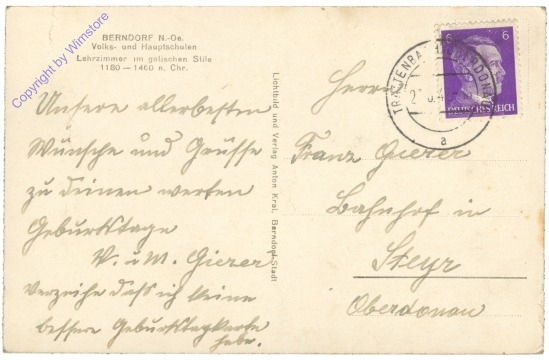 BERNDORF N.-Oe.
Volks- und Hauptschulen
Lehrzimmer im gotischen Stile
1180—1460 n. Chr.
Copyright by Wimstore
Unsere allerbesten
Wünsche und Grüsse
zu deinen werten
Geburtstage
V. u M. Gierer
Verzeihe dass ich keine
bessere Geburtstagkarte
habe.
Lichtbild und Verlag Anton Kral, Berndorf-Stadt
6 6
DEUTSCHES REICH
a
Herrn
Franz Gierer
Bahnhof in
Steyr
Oberdonau